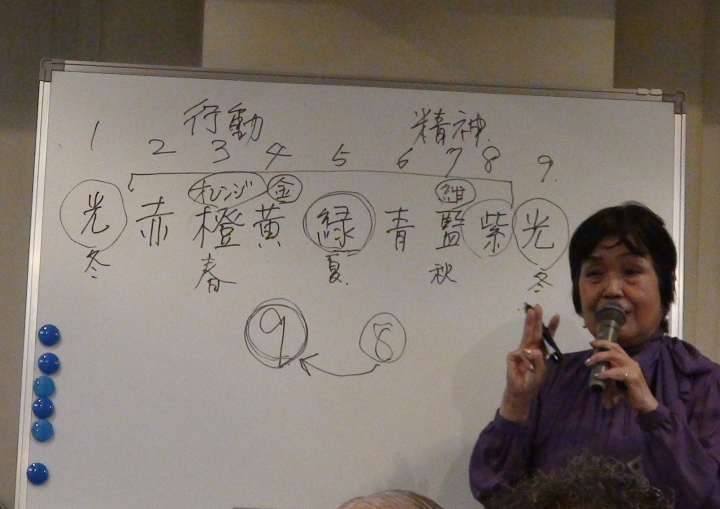 行動 精神
1 2 3 4 5 6 7 8 9
オレンジ 金 紺
光 赤 橙 黄 緑 青 監 紫 光
冬 春 夏 秋 冬
9 8